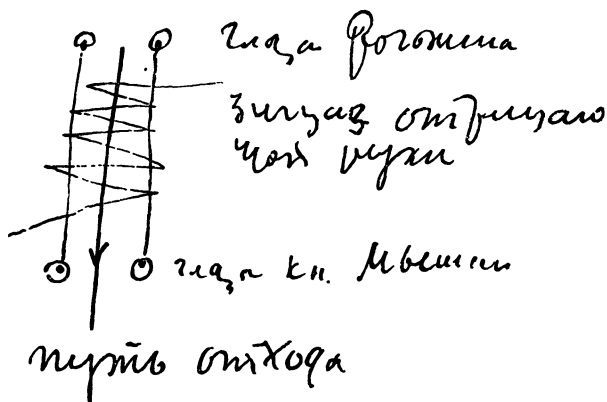 глаза Рогожина
зигзаг отрицаю
щей руки
глаза кн. Мышкин
путь отхода